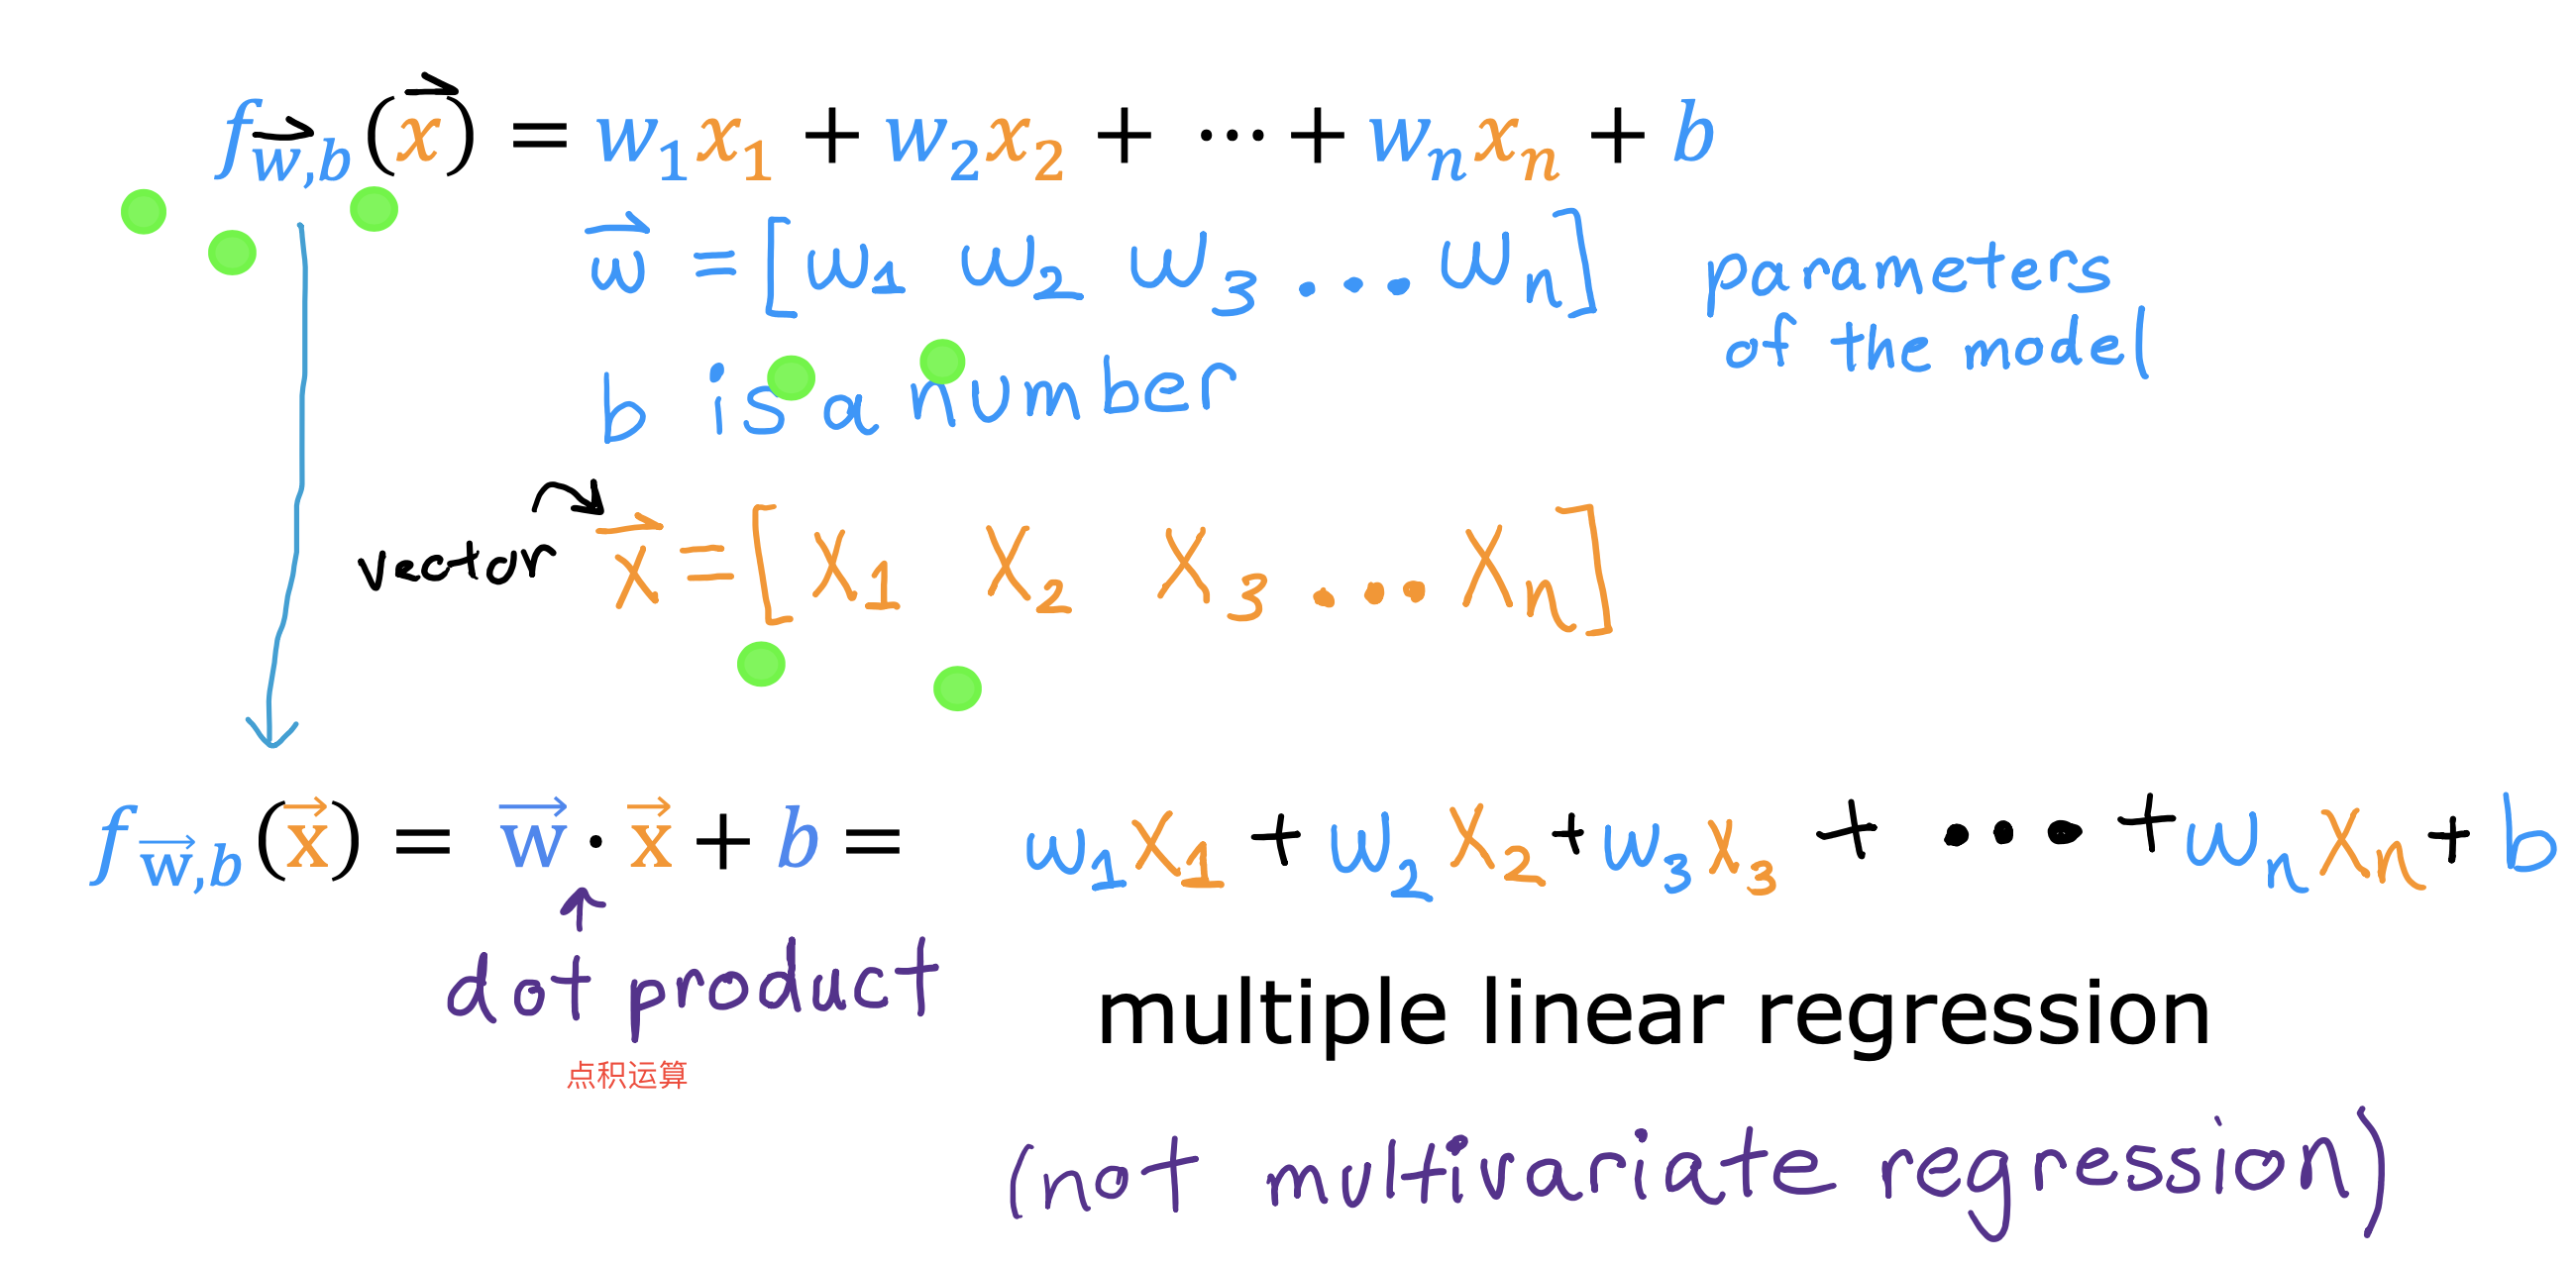 f_{\vec{w},b}(\vec{x}) = w_1x_1 + w_2x_2 + ⋯ + w_nx_n + b
\vec{w} = [w_1 w_2 w_3 ... w_n]
parameters
of the model
b is a number
vector
\vec{x} = [x_1 x_2 x_3 ... x_n]
f_{\vec{w},b}(\vec{x}) = \vec{w} · \vec{x} + b = w_1x_1 + w_2x_2 + w_3x_3 + ... + w_nx_n + b
dot product
点积运算
multiple linear regression
(not multivariate regression)